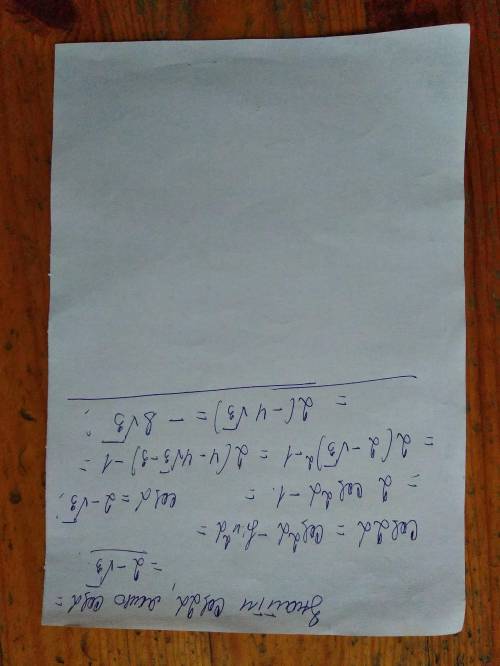 Знайти cos2α, якщо cosα =
= 2-√3
cos2α = cos²α - sin²α =
= 2 cos²α - 1. = cosα = 2-√3;
= 2(2-√3)²-1 = 2(4-4√3-3)-1) =
= 2(-4√3) = - 8√3;